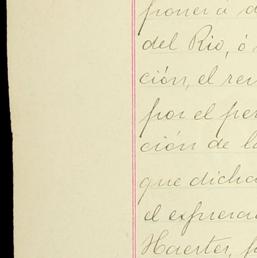 poner á d
del Rio, ó
ción, el re
por el per
ción de l
que dicha
el expresa
Haerter, p